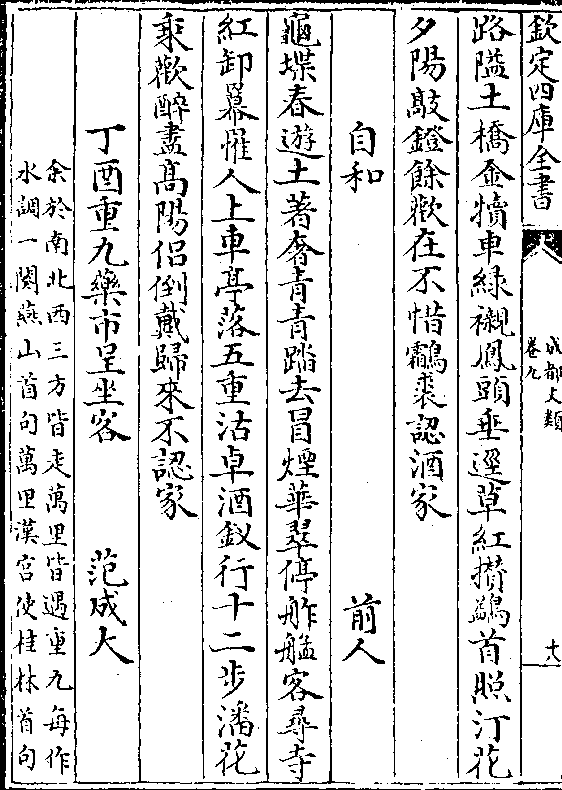 欽定四庫全書
成都文類
卷九
十八
路隘土橋金犢車綠襯鳳頭垂逕草紅攢鷁首照汀花
夕陽敲鐙餘歡在不惜鸘裘認酒家
自和 前人
龜堞春遊土著奢青青踏去冒煙華翠停舴艋客尋寺
紅卸羃幃人上車亭落五重沽卓酒釵行十二步潘花
乘歡醉盡高陽侣倒戴歸來不認家
丁酉重九藥市呈坐客 范成大
余於南北西三方皆走萬里皆遇重九每作
水調一闋燕山首句萬里漢宫使桂林首句